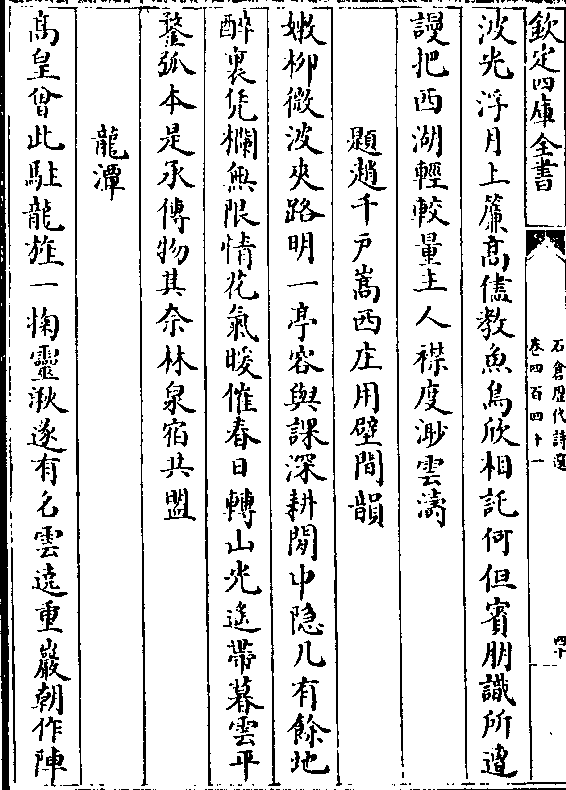 欽定四庫全書
石倉歷代詩選
卷四百四十一
四十
波光浮月上簾高儘教魚鳥欣相託何但賓朋識所遭
謾把西湖輕較量主人襟度渺雲濤
題趙千戶嵩西庄用壁間韻
嫩柳微波夾路明一亭容與課深耕閒中隐几有餘地
醉裏凭欄無限情花氣暖催春日轉山光遙帶暮雲平
鍪弧本是承傳物其奈林泉宿共盟
龍潭
髙皇曾此駐龍旌一掬靈湫遂有名雲遶重巖朝作陣